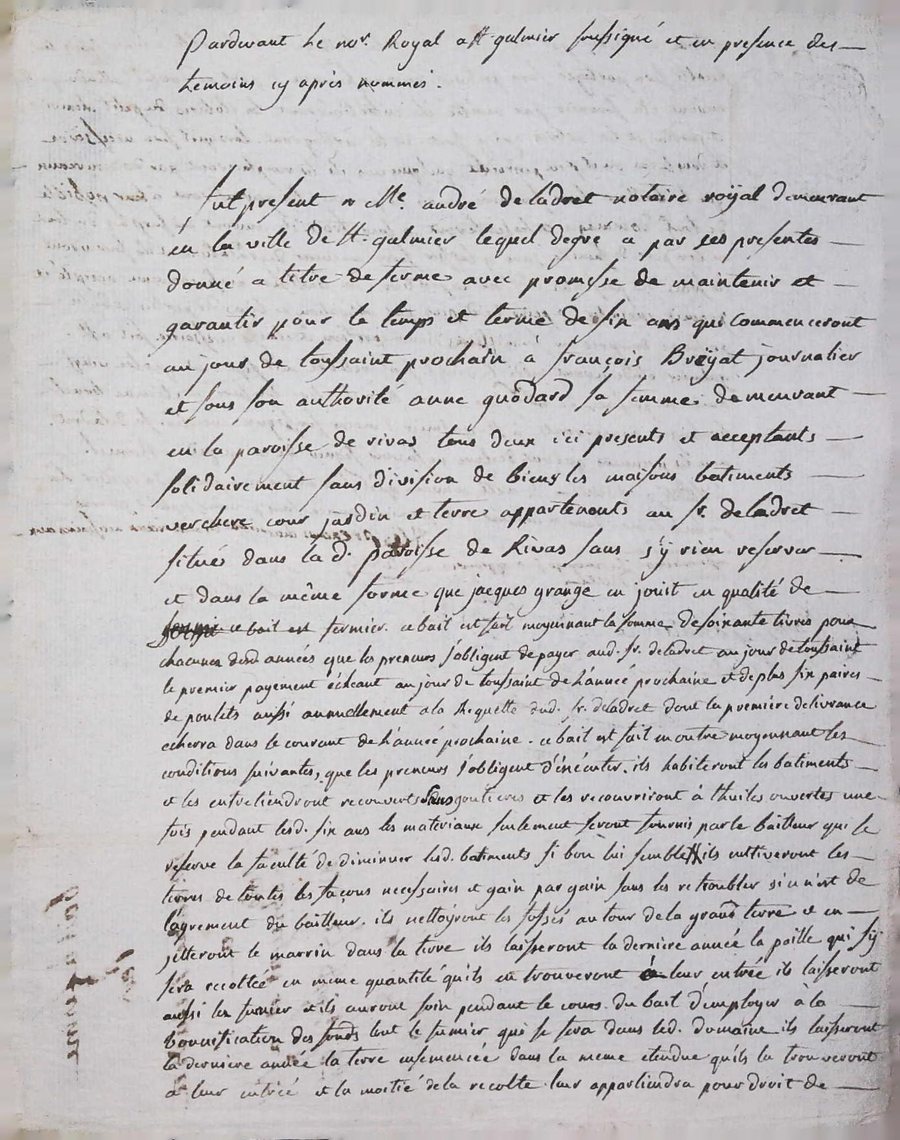 Pardevant Le nore. Royal a St. galmier soussigné et en presence des
temoins cy après nommés.
fut present Me. andré deladret notaire royal demeurant
en la ville de St. galmier lequel degré a par ses presentes
donné a titre de ferme avec promesse de maintenir et
garantir pour le temps et terme de six ans qui Commenceront
au jour de toussaint prochain à françois Brëyat journalier
et sous son authorité anne quodard sa femme demeurant
en la paroisse de rivas tous deux ici presents et acceptants
solidairement sans division de biens les maisons batiments
verchere cour jardin et terre appartenants au sr. deladret
situés dans la d. paroisse de Rivas sans s'y rien reserver
et dans la même forme que jacques grange en jouit en qualité de
ce bail est fermier. ce bail est fait moyennant la somme de soixante livres pour
chacunes desd années que les preneurs s'obligent de payer aud. sr. deladret au jour de toussaint
le premier payement échéant au jour de toussaint de l'année prochaine et de plus six paires
de poulets aussi annuellement a la Requette dud. sr. deladret dont la première delivrance
echerra dans le courant de l'année prochaine. ce bail est fait en outre moyennant les
conditions suivantes, que les preneurs s'obligent d'éxécuter. ils habiteront les batiments
et les entretiendront recouverts sans goutieres et les recouvriront à thuiles ouvertes une
fois pendant lesd. six ans les materiaux seulement seront fournis par le bailleur qui se
reserve la faculté de diminuer lesd. batiments si bon lui semble ils cultiveront les
terres de toutes les façons necessaires et gain par gain sans les retroubler si n'est de
l'agrement du bailleur. ils nettoyront les fossés au tour de la grand terre et en
jetteront le marrin dans la terre ils laisseront la derniere année la paille qui s'y
sera recoltée en meme quantité qu'ils en trouveront à leur entrée ils laisseront
aussi les fumier et ils auront soin pendant le cours du bail d'employer à la
bonnification des fonds tout le fumier qui se fera dans led. domaine ils laisseront
la derniere année la terre ensemencée dans la meme etendue qu'ils la trouveront
a leur entrée et la moitié de la recolte leur appartiendra pour droit de